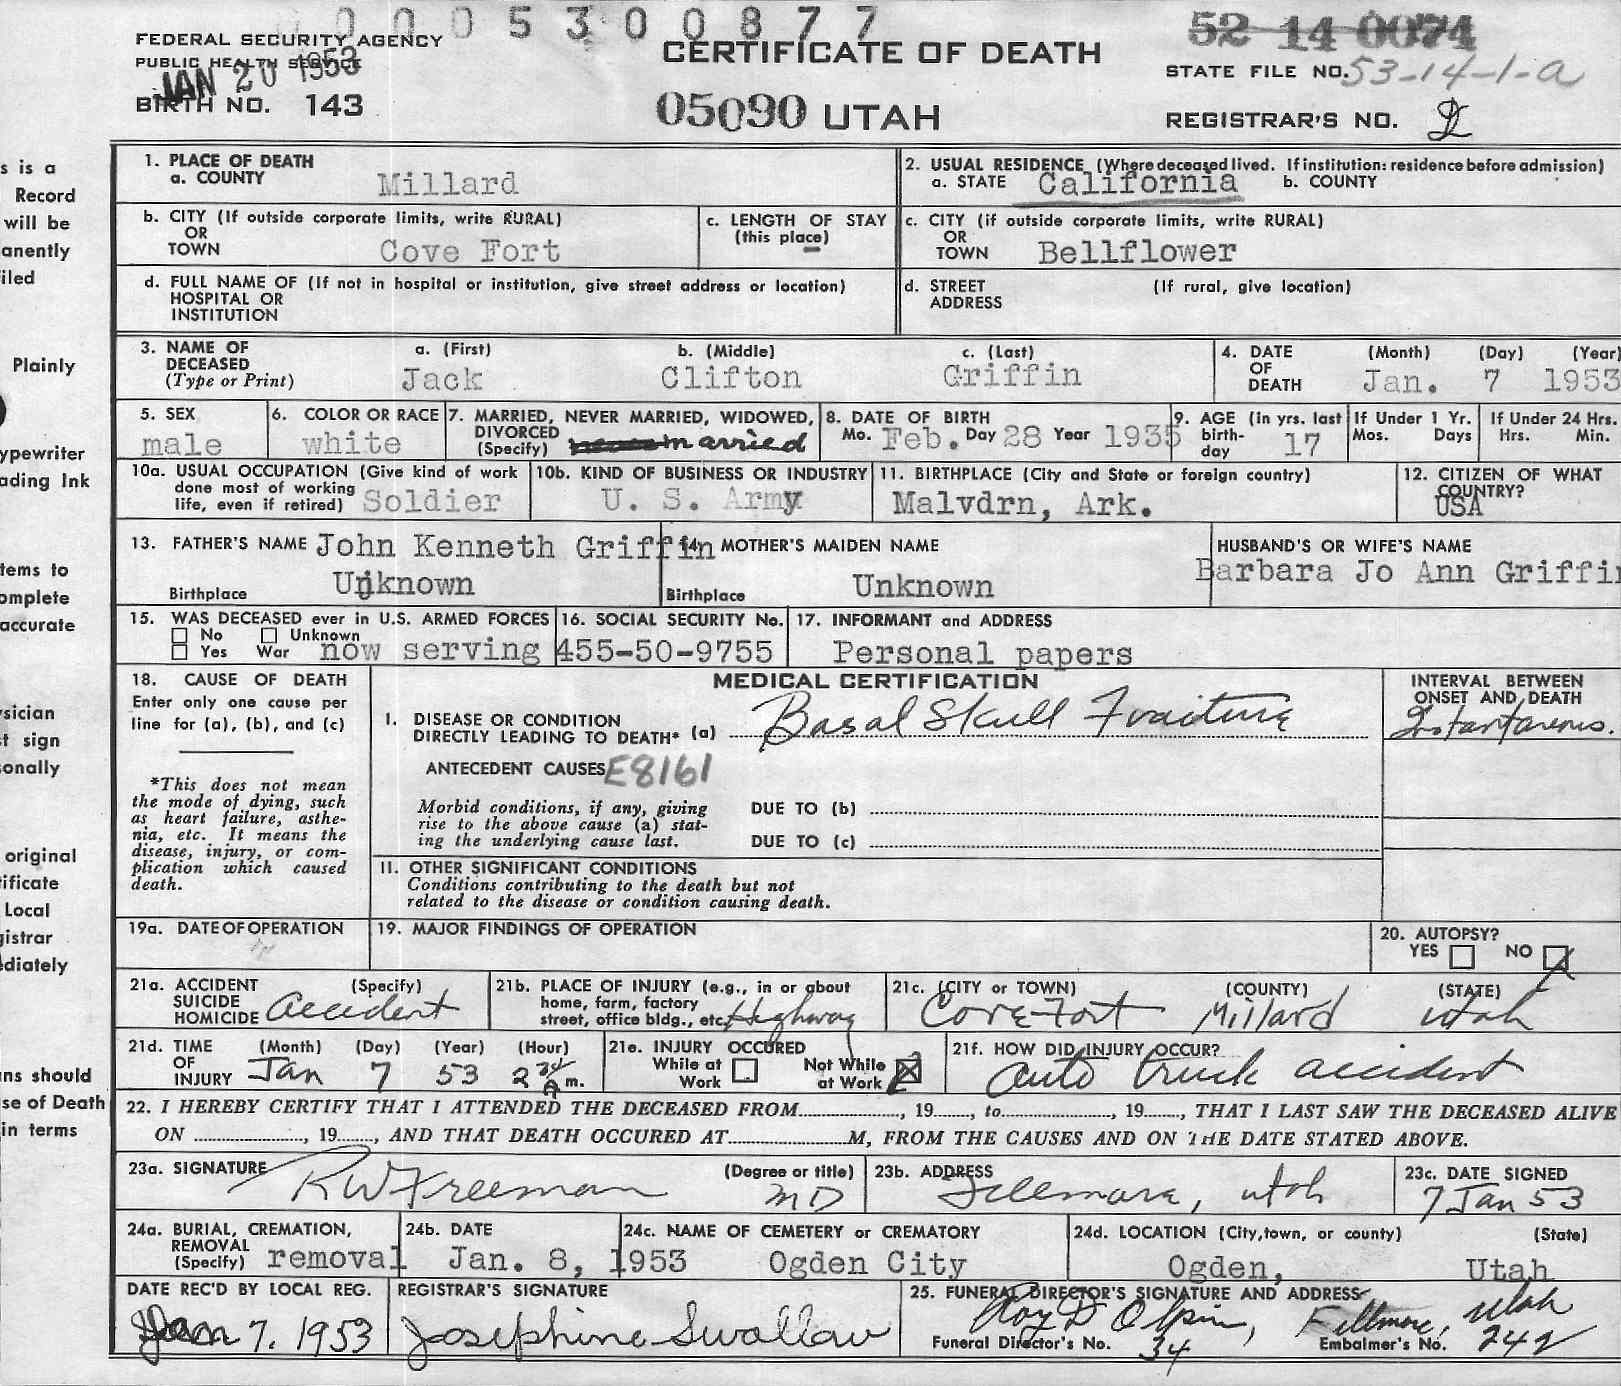 0005300877
52 14 0074
FEDERAL SECURITY AGENCY
PUBLIC HEALTH SERVICE
JAN 20 1953
BIRTH NO. 143
CERTIFICATE OF DEATH
05090 UTAH
STATE FILE NO. 53-14-1-a
REGISTRAR'S NO.
s is a
Record
will be
anently
iled
Plainly
ypewriter
ading Ink
tems to
omplete
accurate
sician
t sign
onally
original
ificate
Local
gistrar
diately
ns should
se of Death
in terms
1. PLACE OF DEATH
a. COUNTY Millard
2. USUAL RESIDENCE (Where deceased lived. If institution: residence before admission)
a. STATE California b. COUNTY
b. CITY (If outside corporate limits, write RURAL)
OR
TOWN Cove Fort
c. LENGTH OF STAY
(this place)
c. CITY (if outside corporate limits, write RURAL)
OR
TOWN Bellflower
d. FULL NAME OF (If not in hospital or institution, give street address or location)
HOSPITAL OR
INSTITUTION
d. STREET (If rural, give location)
ADDRESS
3. NAME OF DECEASED
(Type or Print)
a. (First) b. (Middle) c. (Last)
Jack Clifton Griffin
4. DATE OF DEATH (Month) (Day) (Year)
Jan. 7 1953
5. SEX
male
6. COLOR OR RACE
white
7. MARRIED, NEVER MARRIED, WIDOWED,
DIVORCED
(Specify) married
8. DATE OF BIRTH
Mo. Feb. Day 28 Year 1935
9. AGE (in yrs. last
birth-
day 17
If Under 1 Yr.
Mos. Days
If Under 24 Hrs.
Hrs. Min.
10a. USUAL OCCUPATION (Give kind of work
done most of working
life, even if retired) Soldier
10b. KIND OF BUSINESS OR INDUSTRY
U. S. Army
11. BIRTHPLACE (City and State or foreign country)
Malvdrn, Ark.
12. CITIZEN OF WHAT
COUNTRY?
USA
13. FATHER'S NAME John Kenneth Griffin
Birthplace Unknown
14. MOTHER'S MAIDEN NAME
Birthplace Unknown
HUSBAND'S OR WIFE'S NAME
Barbara Jo Ann Griffi
15. WAS DECEASED ever in U.S. ARMED FORCES
No Unknown
Yes War now serving
16. SOCIAL SECURITY No.
455-50-9755
17. INFORMANT and ADDRESS
Personal papers
18. CAUSE OF DEATH
Enter only one cause per
line for (a), (b), and (c)
*This does not mean
the mode of dying, such
as heart failure, asthe-
nia, etc. It means the
disease, injury, or com-
plication which caused
death.
MEDICAL CERTIFICATION
I. DISEASE OR CONDITION
DIRECTLY LEADING TO DEATH* (a) Basal Skull Fracture
ANTECEDENT CAUSES E8161
Morbid conditions, if any, giving
rise to the above cause (a) stat-
ing the underlying cause last.
DUE TO (b)
DUE TO (c)
II. OTHER SIGNIFICANT CONDITIONS
Conditions contributing to the death but not
related to the disease or condition causing death.
INTERVAL BETWEEN
ONSET AND DEATH
Instantaneous.
19a. DATE OF OPERATION
19. MAJOR FINDINGS OF OPERATION
20. AUTOPSY?
YES NO
21a. ACCIDENT (Specify)
SUICIDE
HOMICIDE accident
21b. PLACE OF INJURY (e.g., in or about
home, farm, factory
street, office bldg., etc. Highway
21c. (CITY or TOWN) (COUNTY) (STATE)
Cove Fort Millard Utah
21d. TIME OF INJURY (Month) (Day) (Year) (Hour)
Jan 7 53 2 34 A m.
21e. INJURY OCCURED
While at Work Not While at Work
21f. HOW DID INJURY OCCUR?
auto truck accident
22. I HEREBY CERTIFY THAT I ATTENDED THE DECEASED FROM, 19, to, 19, THAT I LAST SAW THE DECEASED ALIVE
ON, 19, AND THAT DEATH OCCURED AT M, FROM THE CAUSES AND ON THE DATE STATED ABOVE.
23a. SIGNATURE (Degree or title)
RW Freeman MD
23b. ADDRESS
Utah
23c. DATE SIGNED
7 Jan 53
24a. BURIAL, CREMATION,
REMOVAL
(Specify) removal
24b. DATE
Jan. 8, 1953
24c. NAME OF CEMETERY or CREMATORY
Ogden City
24d. LOCATION (City, town, or county) (State)
Ogden, Utah
DATE REC'D BY LOCAL REG.
Jan 7, 1953
REGISTRAR'S SIGNATURE
Josephine Swallow
25. FUNERAL DIRECTOR'S SIGNATURE AND ADDRESS
Roy D Olpin, Fillmore, Utah
Funeral Director's No. 34
Embalmer's No. 242